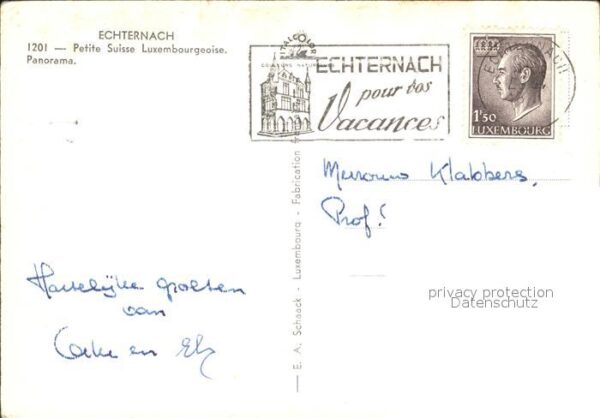 ECHTERNACH
1201 — Petite Suisse Luxembourgeoise.
Panorama.
ECHTERNACH
pour vos
Vacances
ECHTERNACH
1F50
LUXEMBOURG
E. A. Schaack - Luxembourg - Fabrication
Klabbers,
Prof!
Hartelijke groeten
van
en
privacy protection
Datenschutz